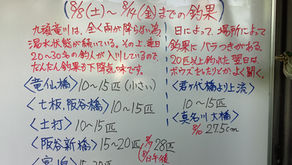 8/8(土)～8/14(金)までの釣果
九頭竜川は、全く雨が降らない為
渇水状態が続いている。その上、毎日
20～30名の釣人が入川しているので
だんだん釣果が下降気味です。
日によって、場所によって
釣果にバラつきがある。
20匹以上釣った翌日は
ボウズをもたりとのよく聞く。
<竜仙橋>10～15匹(小さい)
<七板、阪谷橋>10～15匹
<土打>10～15匹
<阪谷新橋>15～20匹 28匹
15～20匹 午後
<君が代橋より上流>
<10～15匹
<真名川大橋>
27.5cm